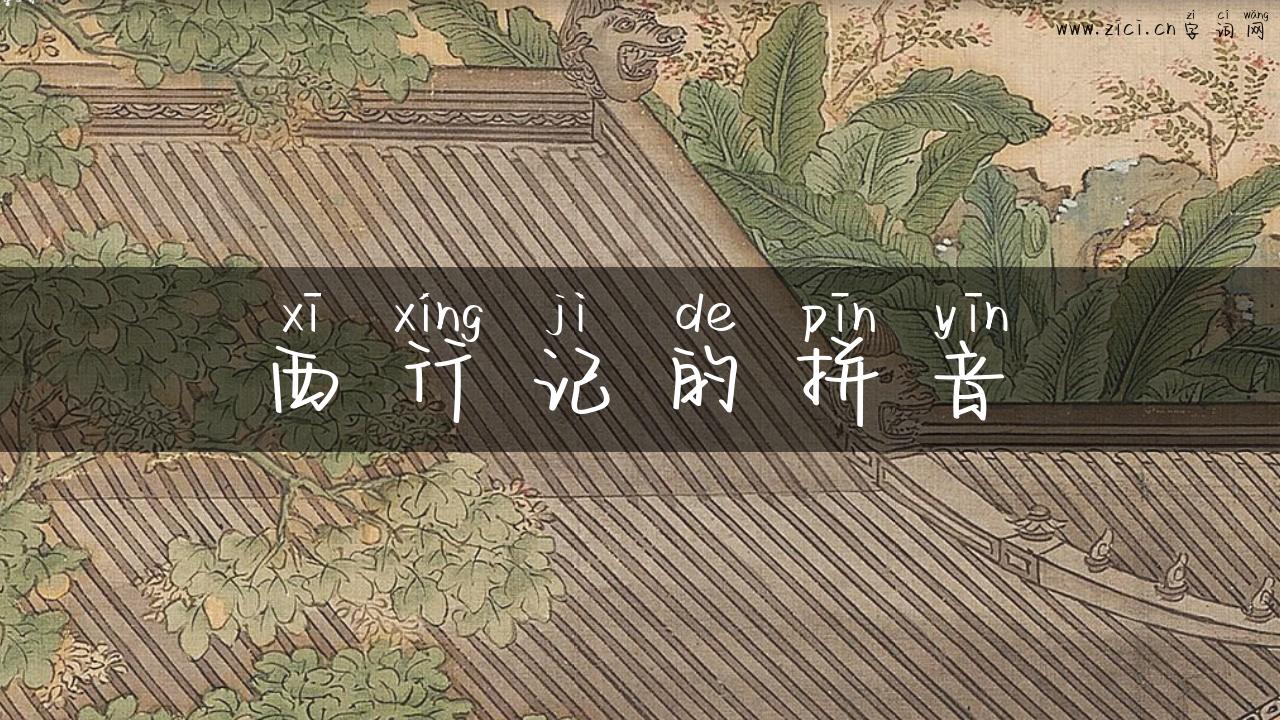 zì cí wǎng
www.zici.cn 字词网
xī xíng jì de pīn yīn
西行记的拼音